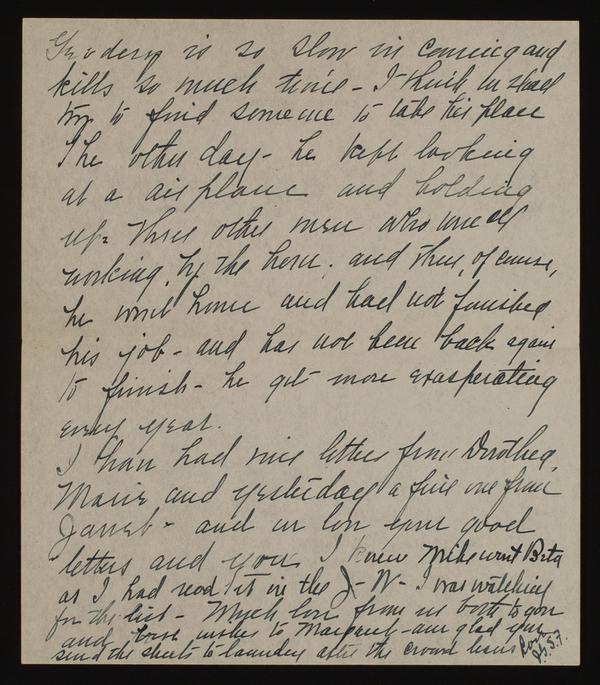 is so slow in coming and
kills so much time - I think we shall
try to find someone to take his place
The other day - he kept looking
at a airplane and holding
up three other men who were all
working by the hour, and then, of course,
he went home and had not finished
his job - and has not been back again
to finish - he gets more exasperating
every year.
I have had nice letters from Dorothea,
Marie and yesterday a fine one from
Janet - and we love your good
letters and you. I knew Mike went Beta
as I had read it in the J- W- I was watching
for the list - Much love from us both to you
and best wishes to Margaret - am glad you
send the sheets to laundry after the crowd leaves